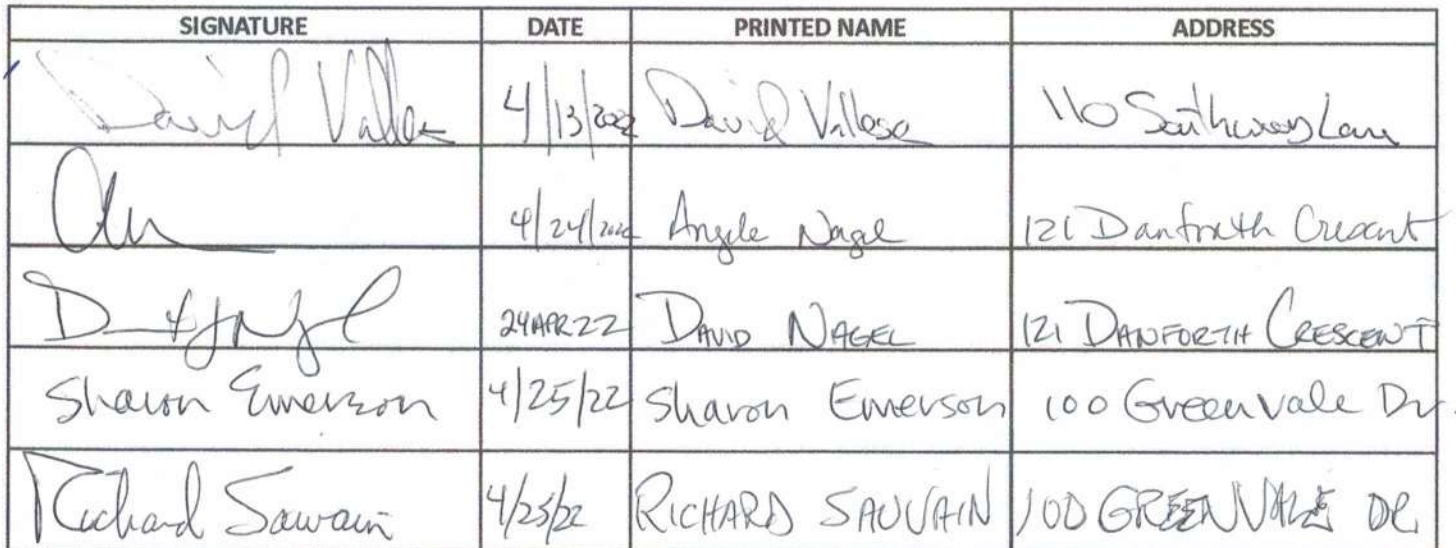 SIGNATURE DATE PRINTED NAME ADDRESS
David 4/13/2022 David 110 Southway Lane
4/24/2022 Angele Nagel 121 Danforth Crescent
24APR22 DAVID NAGEL 121 DANFORTH CRESCENT
Sharon Emerson 4/25/22 Sharon Emerson 100 Greenvale Dr
Richard Sauvain 4/25/22 RICHARD SAUVAIN 100 GREENVALE DR.